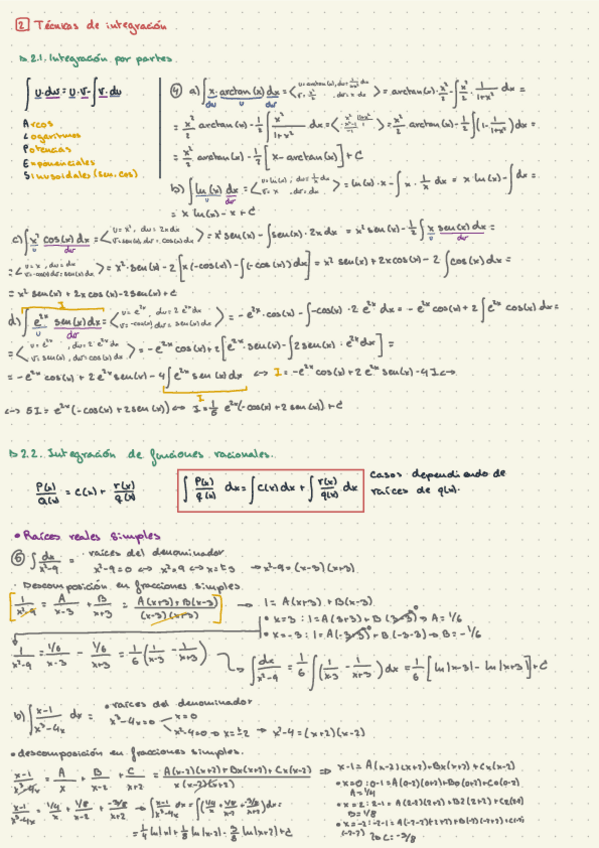 2 Técnicas de integración
▷ 2.1. Integración por partes.
∫ u·dv = u·v - ∫ v·du
Arcos
Logaritmos
Potencias
Exponenciales
Sinusoidales (sen, cos)
④ a) ∫ x·arctan(x) dx = < u=arctan(x), du=1/(1+x²) dx; v=x²/2, dv=x dx > = arctan(x)·x²/2 - ∫ x²/2 · 1/(1+x²) dx =
= x²/2 arctan(x) - 1/2 ∫ x²/(1+x²) dx = x²/2 arctan(x) - 1/2 ∫ (1 - 1/(1+x²)) dx =
= x²/2 arctan(x) - 1/2 [x - arctan(x)] + C
b) ∫ ln(x) dx = < u=ln(x), du=1/x dx; v=x, dv=dx > = ln(x)·x - ∫ x · 1/x dx = x ln(x) - ∫ dx =
= x ln(x) - x + C
c) ∫ x² cos(x) dx = < u=x², du=2x dx; v=sen(x), dv=cos(x) dx > = x² sen(x) - ∫ sen(x)·2x dx = x² sen(x) - ∫ x sen(x) dx =
= < u=x, du=dx; v=-cos(x), dv=sen(x) dx > = x²·sen(x) - 2 [x(-cos(x)) - ∫ (-cos(x)) dx] = x² sen(x) + 2x cos(x) - 2 ∫ cos(x) dx =
= x² sen(x) + 2x cos(x) - 2 sen(x) + C
I
d) ∫ e²ˣ sen(x) dx = < u=e²ˣ, du=2 e²ˣ dx; v=-cos(x), dv=sen(x) dx > = -e²ˣ·cos(x) - ∫ -cos(x)·2 e²ˣ dx = -e²ˣ cos(x) + 2 ∫ e²ˣ cos(x) dx =
= < u=e²ˣ, du=2 e²ˣ dx; v=sen(x), dv=cos(x) dx > = -e²ˣ cos(x) + 2 [e²ˣ·sen(x) - ∫ 2 sen(x)·e²ˣ dx] =
= -e²ˣ cos(x) + 2 e²ˣ sen(x) - 4 ∫ e²ˣ sen(x) dx ⟷ I = -e²ˣ cos(x) + 2 e²ˣ sen(x) - 4I ⟷
I
⟷ 5I = e²ˣ (-cos(x) + 2 sen(x)) ⟷ I = 1/5 e²ˣ (-cos(x) + 2 sen(x)) + C
▷ 2.2. Integración de funciones racionales.
P(x)/Q(x) = C(x) + r(x)/q(x)
∫ P(x)/q(x) dx = ∫ C(x) dx + ∫ r(x)/q(x) dx
Casos dependiendo de
raíces de q(x).
• Raíces reales simples
⑤ ∫ dx/(x²-9) =
· raíces del denominador
x²-9=0 ⟷ x²=9 ⟷ x=±3 → x²-9=(x-3)(x+3)
· Descomposición en fracciones simples.
1/(x²-9) = A/(x-3) + B/(x+3) = (A(x+3)+B(x-3))/((x-3)(x+3)) → 1 = A(x+3) + B(x-3)
• x=3: 1=A(3+3)+B(3-3)⁰ → A=1/6
• x=-3: 1=A(-3+3)⁰+B(-3-3) → B=-1/6
1/(x²-9) = (1/6)/(x-3) - (1/6)/(x+3) = 1/6 (1/(x-3) - 1/(x+3))
∫ dx/(x²-9) = 1/6 ∫ (1/(x-3) - 1/(x+3)) dx = 1/6 [ln|x-3| - ln|x+3|] + C
b) ∫ (x-1)/(x³-4x) dx =
• raíces del denominador
x³-4x=0 x=0
x²-4=0 → x=±2 → x²-4=(x+2)(x-2)
• descomposición en fracciones simples.
(x-1)/(x³-4x) = A/x + B/(x-2) + C/(x+2) = (A(x-2)(x+2)+Bx(x+2)+Cx(x-2))/(x(x-2)(x+2)) ⇒ x-1=A(x-2)(x+2)+Bx(x+2)+Cx(x-2)
• x=0: 0-1=A(0-2)(0+2)+B0(0+2)+C0(0-2)
A=1/4
• x=2: 2-1=A(2-2)(2+2)+B2(2+2)+C2(2-2)
B=1/8
C=-3/8
(x-1)/(x³-4x) = (1/4)/x + (1/8)/(x-2) + (-3/8)/(x+2) → ∫ (x-1)/(x³-4x) dx = ∫ ((1/4)/x + (1/8)/(x-2) + (-3/8)/(x+2)) dx =
= 1/4 ln|x| + 1/8 ln|x-2| - 3/8 ln|x+2| + C